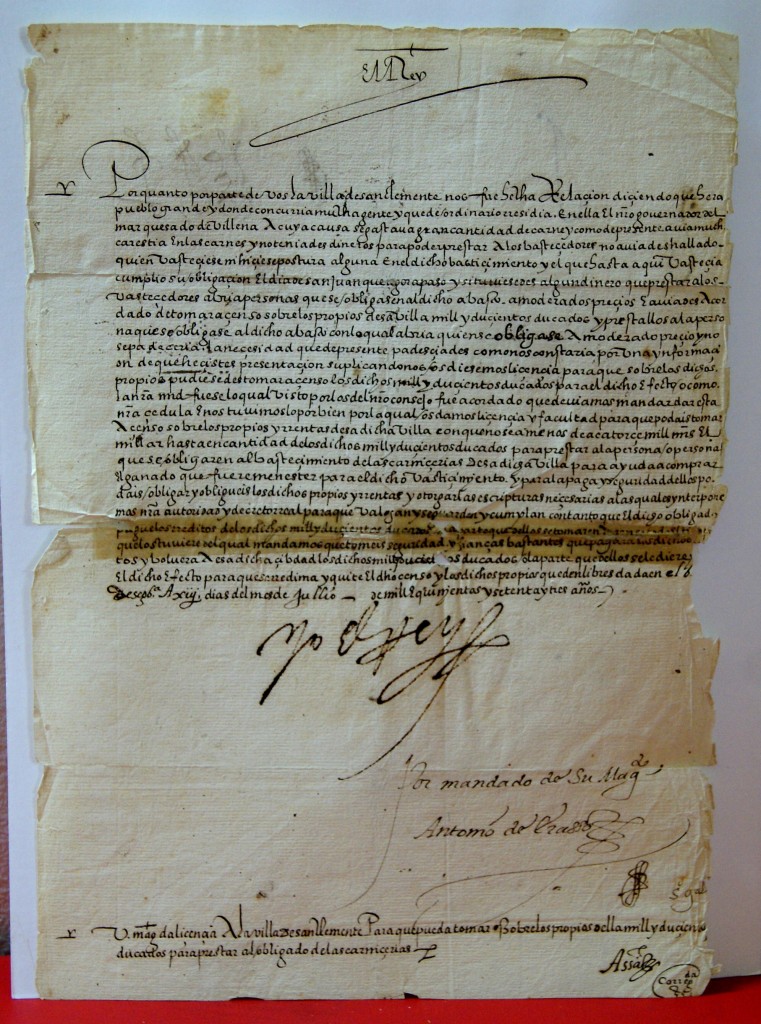 El Rey
Por quanto por parte de vos la villa de san clemente nos fue hecha Relacion diçiendo que hera
pueblo grande y donde concurria mucha gente y que de ordinario residia en ella El nro governador del
marquesado de villena A cuya causa se gastava gran cantidad de carne y como de presente avia mucha
carestia En las carnes y no teniades dineros para poder prestar A los bastecedores no aviades hallado
quien basteçiese ni hiçiese postura alguna En el dicho basteçimiento y el que hasta aqui basteçia
cumplio su obligaçion El dia de san Juan que agora paso y si tuviesedes algun dinero que prestar a los
vastecedores abria personas que se obligasen al dicho abasto a moderados preçios E aviades Acor
dado de tomar a çenso sobre los propios desa villa mill y duçientos ducados y prestallos a la perso
na que se obligase al dicho abasto con lo qual abria quien se obligase A moderado preçio y no
se padeçeria la neçesidad que de presente padesciades como nos constaria por una ynformaçion
de que hecistes presentaçion suplicandonos os diesemos liçençia para que sobre los dichos
propios pudiesedes tomar a censo los dichos mill y duçientos ducados para el dicho Efecto o como
la nra mrd fuese lo qual visto por los del nro consejo fue acordado que deviamos mandar dar esta
nra çedula E nos tuvimoslo por bien por la qual os damos liçençia y facultad para que podais tomar
A censo sobre los propios y rrentas desa dicha Villa con que no sea menos de a catorce mill mrs El
millar hasta en cantidad de los dichos mill y duçientos ducados para prestar a la persona o personas
que se obligaren al bastecimiento de las carniçerias Desa dicha Villa para ayuda a comprar
El ganado que fuere menester para el dicho Vastiçimiento y para la paga y seguridad dellos po
dais obligar y obligueis los dichos propios y rrentas y otorgar las escripturas neçesarias a las quales ynterpone
mos nra autoridad y decreto real para que valgan y se guarden y cumplan con tanto que El dicho obligado
pague los reditos de los dichos mill y duçientos ducados
que los tuviere del qual mandamos que tomeis seguridad y fianças bastantes que pagara los dichos
tos y bolvera A esa dicha çibdad los dichos mill y duçientos ducados o la parte que dellos se le diere
El dicho efecto para que se rredima y quite El dho censo y los dichos propios queden libres dada en el
De sego.ª A xiij dias del mes de Jullio de mill E quinientos y setenta y tres años
yo el rey
Por mandado de Su Magd
Antonio de Erasso
V. magd da licençia A la villa De san clemente Para que pueda tomar Sobre los propios della mill y duçientos
ducados para prestar al obligado de las carniçerias
Correda